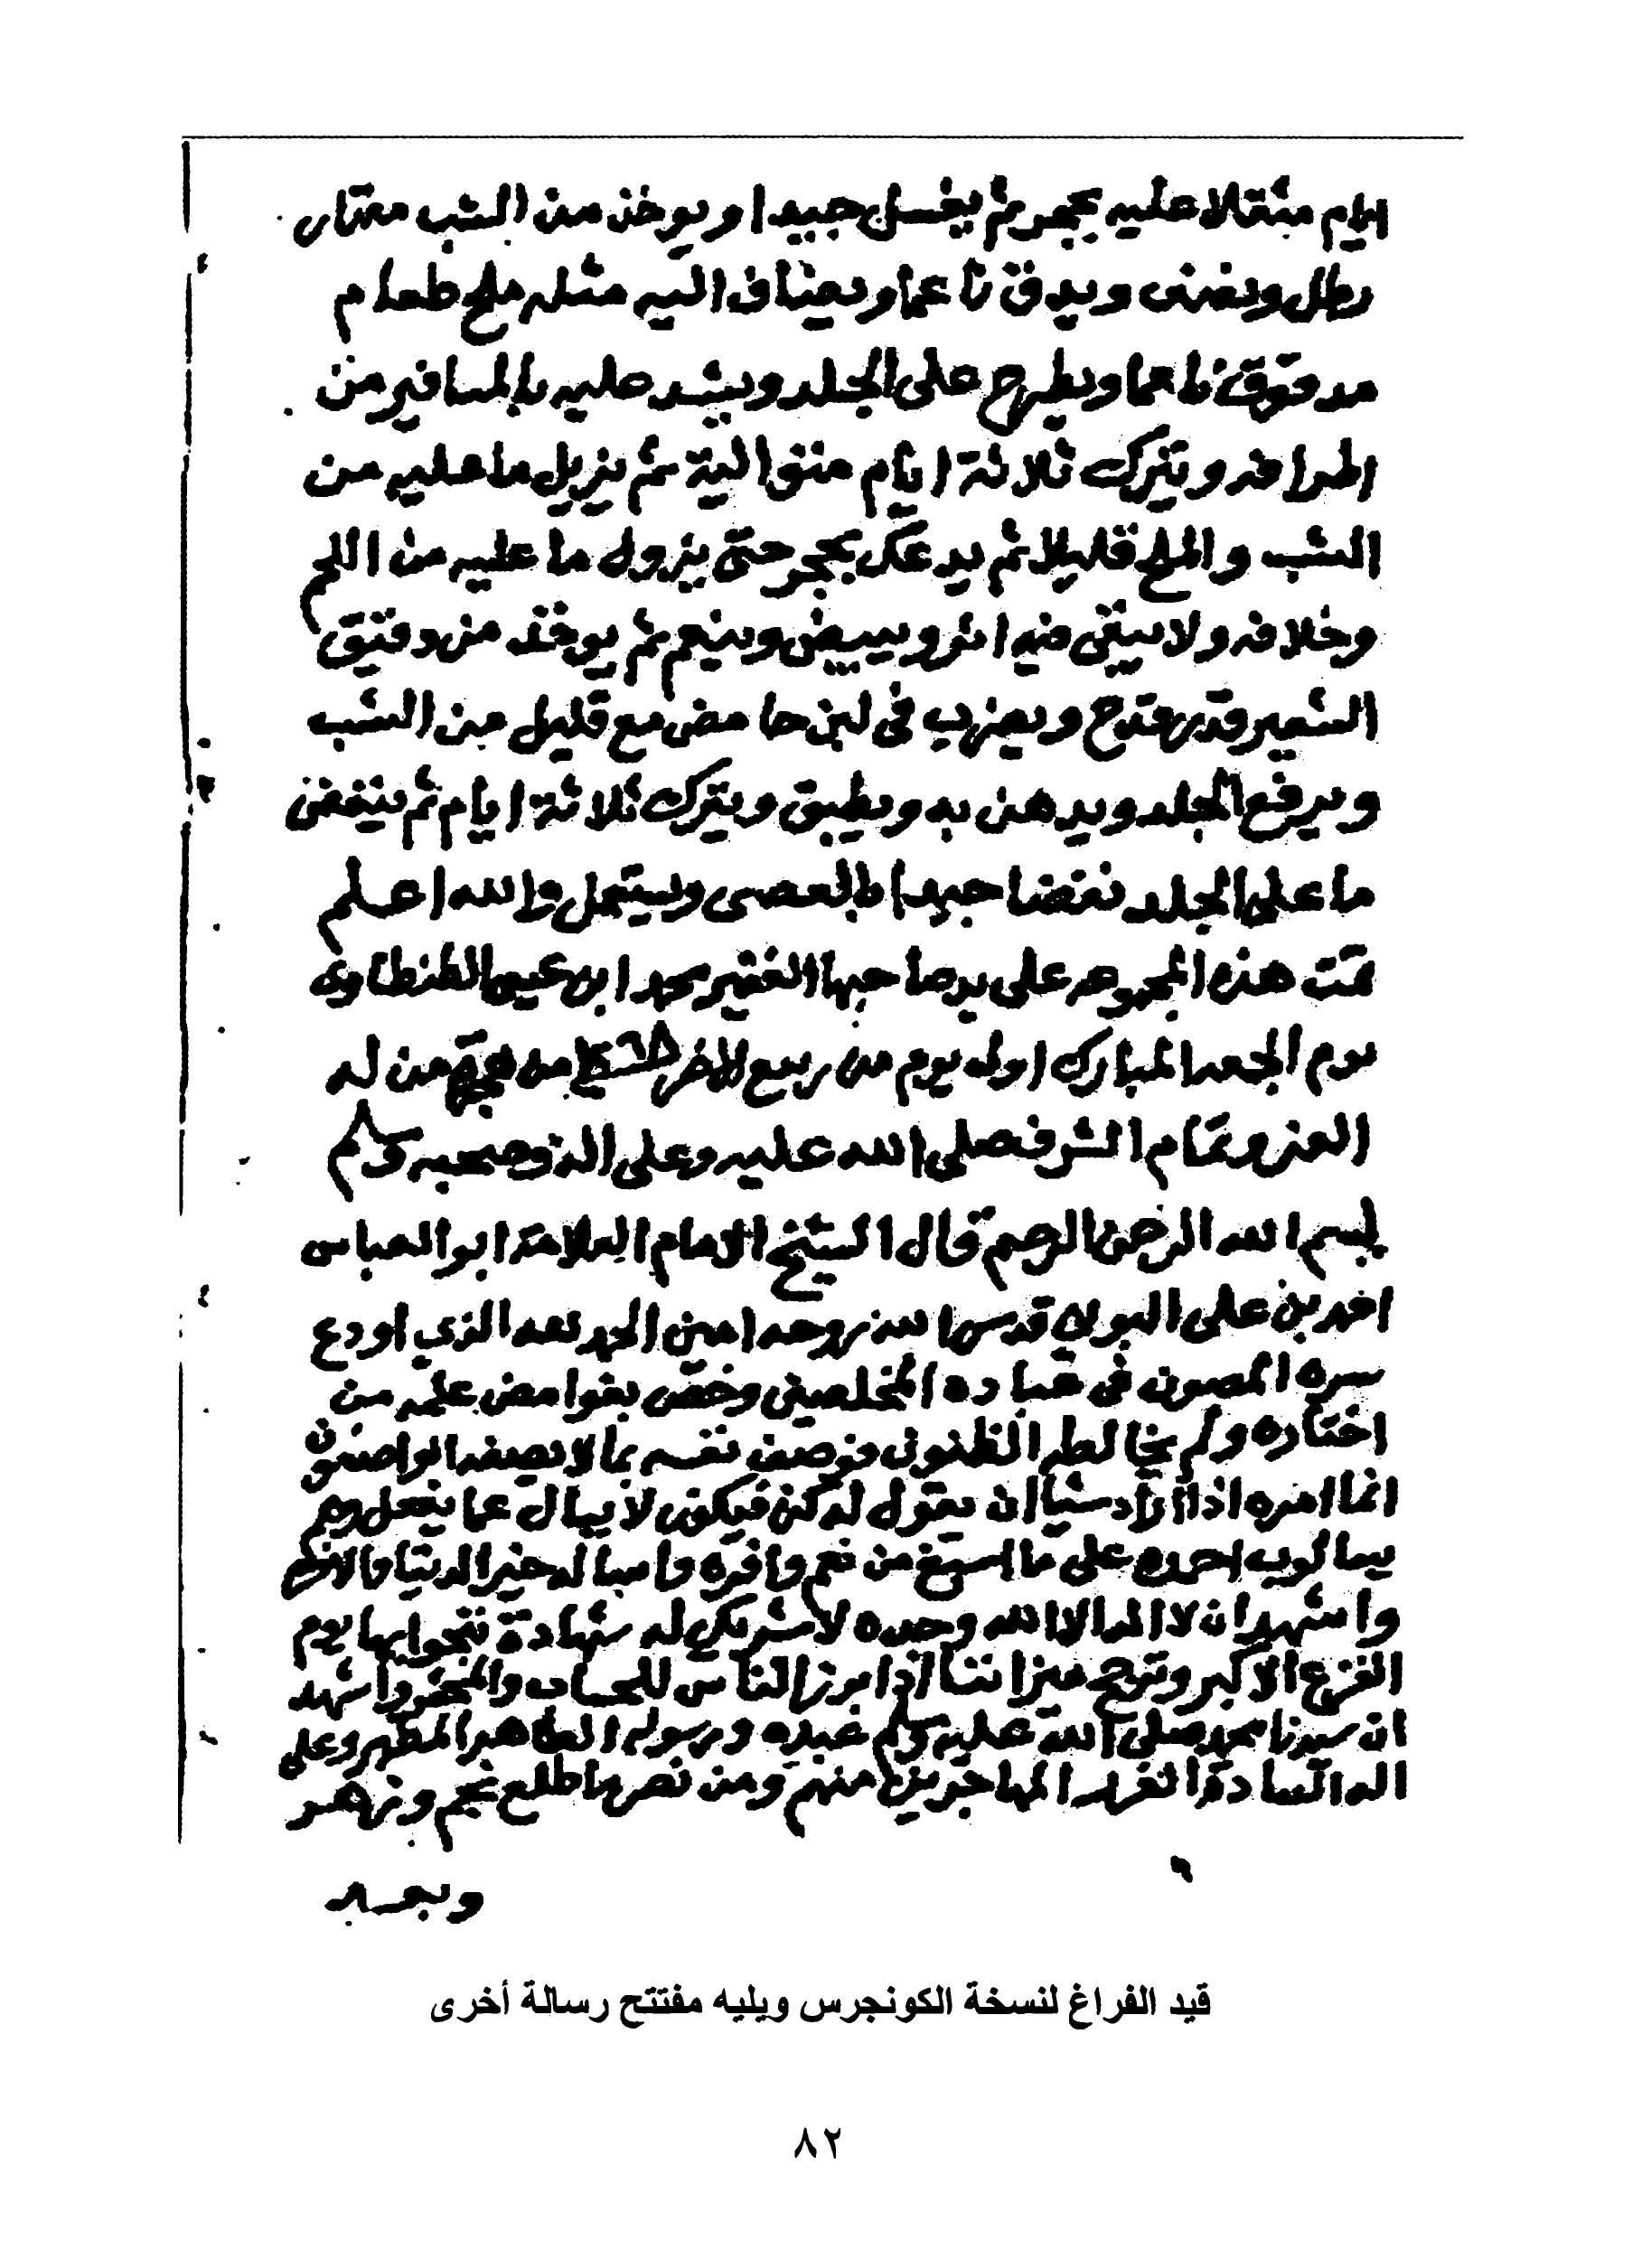 ايام مثقلا عليه بحجر ثم يغسل جيدا ويوخذ من الشب مقدار
رطل ونصف ويدق ناعما ويضاف اليه مثله ملح طعام
مدقوق ناعما ويطرح على الجلد ويشد عليه بالمسافير من
اطرافه ويترك ثلاثة ايام متوالية ثم يزيل ما عليه من
الشب والملح قليلا ثم يدعك بحجر حتى يزول ما عليه من اللحم
وخلافه ولا يبقى فيه اثر ويبيض وينعم ثم يوخذ من دقيق
الشعير قدر قدح ويضرب في لبن حامض مع قليل من الشب
ويرفع الجلد ويدهن به ويطبق ويترك ثلاثة ايام ثم ينفض
ما على الجلد نفضا جيدا بالعصى ويستعمل والله اعلم
تمت هذه المجموعه على يد صاحبها الفقير محمد ابن عيسى الطنطاوى
يوم الجمعه المبارك اول يوم من ربيع الاخر من هجرة من له
العز وتمام الشرف صلى الله عليه وعلى اله وصحبه وسلم
بسم الله الرحمن الرحيم قال الشيخ الامام العلامة ابو العباس
احمد بن على البوني قدس الله روحه امين الحمد لله الذي اودع
سره المصون في عباده المخلصين وخص بغوامض علمه من
اختاره ولم يخالطه الظنون فوصف نفسه بما لا يصفه الواصفون
انما امره اذا اراد شيأ ان يقول له كن فيكون لا يسال عما يفعل وهم
يسالون احمده على ما اسبغ من نعم وافره واساله خير الدنيا والاخرة
واشهد ان لا اله الا الله وحده لا شريك له شهادة ننجوا بها يوم
الفزع الاكبر وترجح ميزاننا اذا برز الناس للحساب واشهد
ان سيدنا محمد صلى الله عليه وسلم عبده ورسوله الطاهر المطهر وعلى
اله السادة الغرر المهاجرين منهم ومن نصر ما طلع نجم وزهر
وبعد
قيد الفراغ لنسخة الكونجرس ويليه مفتتح رسالة أخرى
٨٢